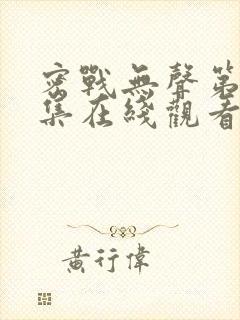 密戰無聲第
集在綫觀看
黃行偉